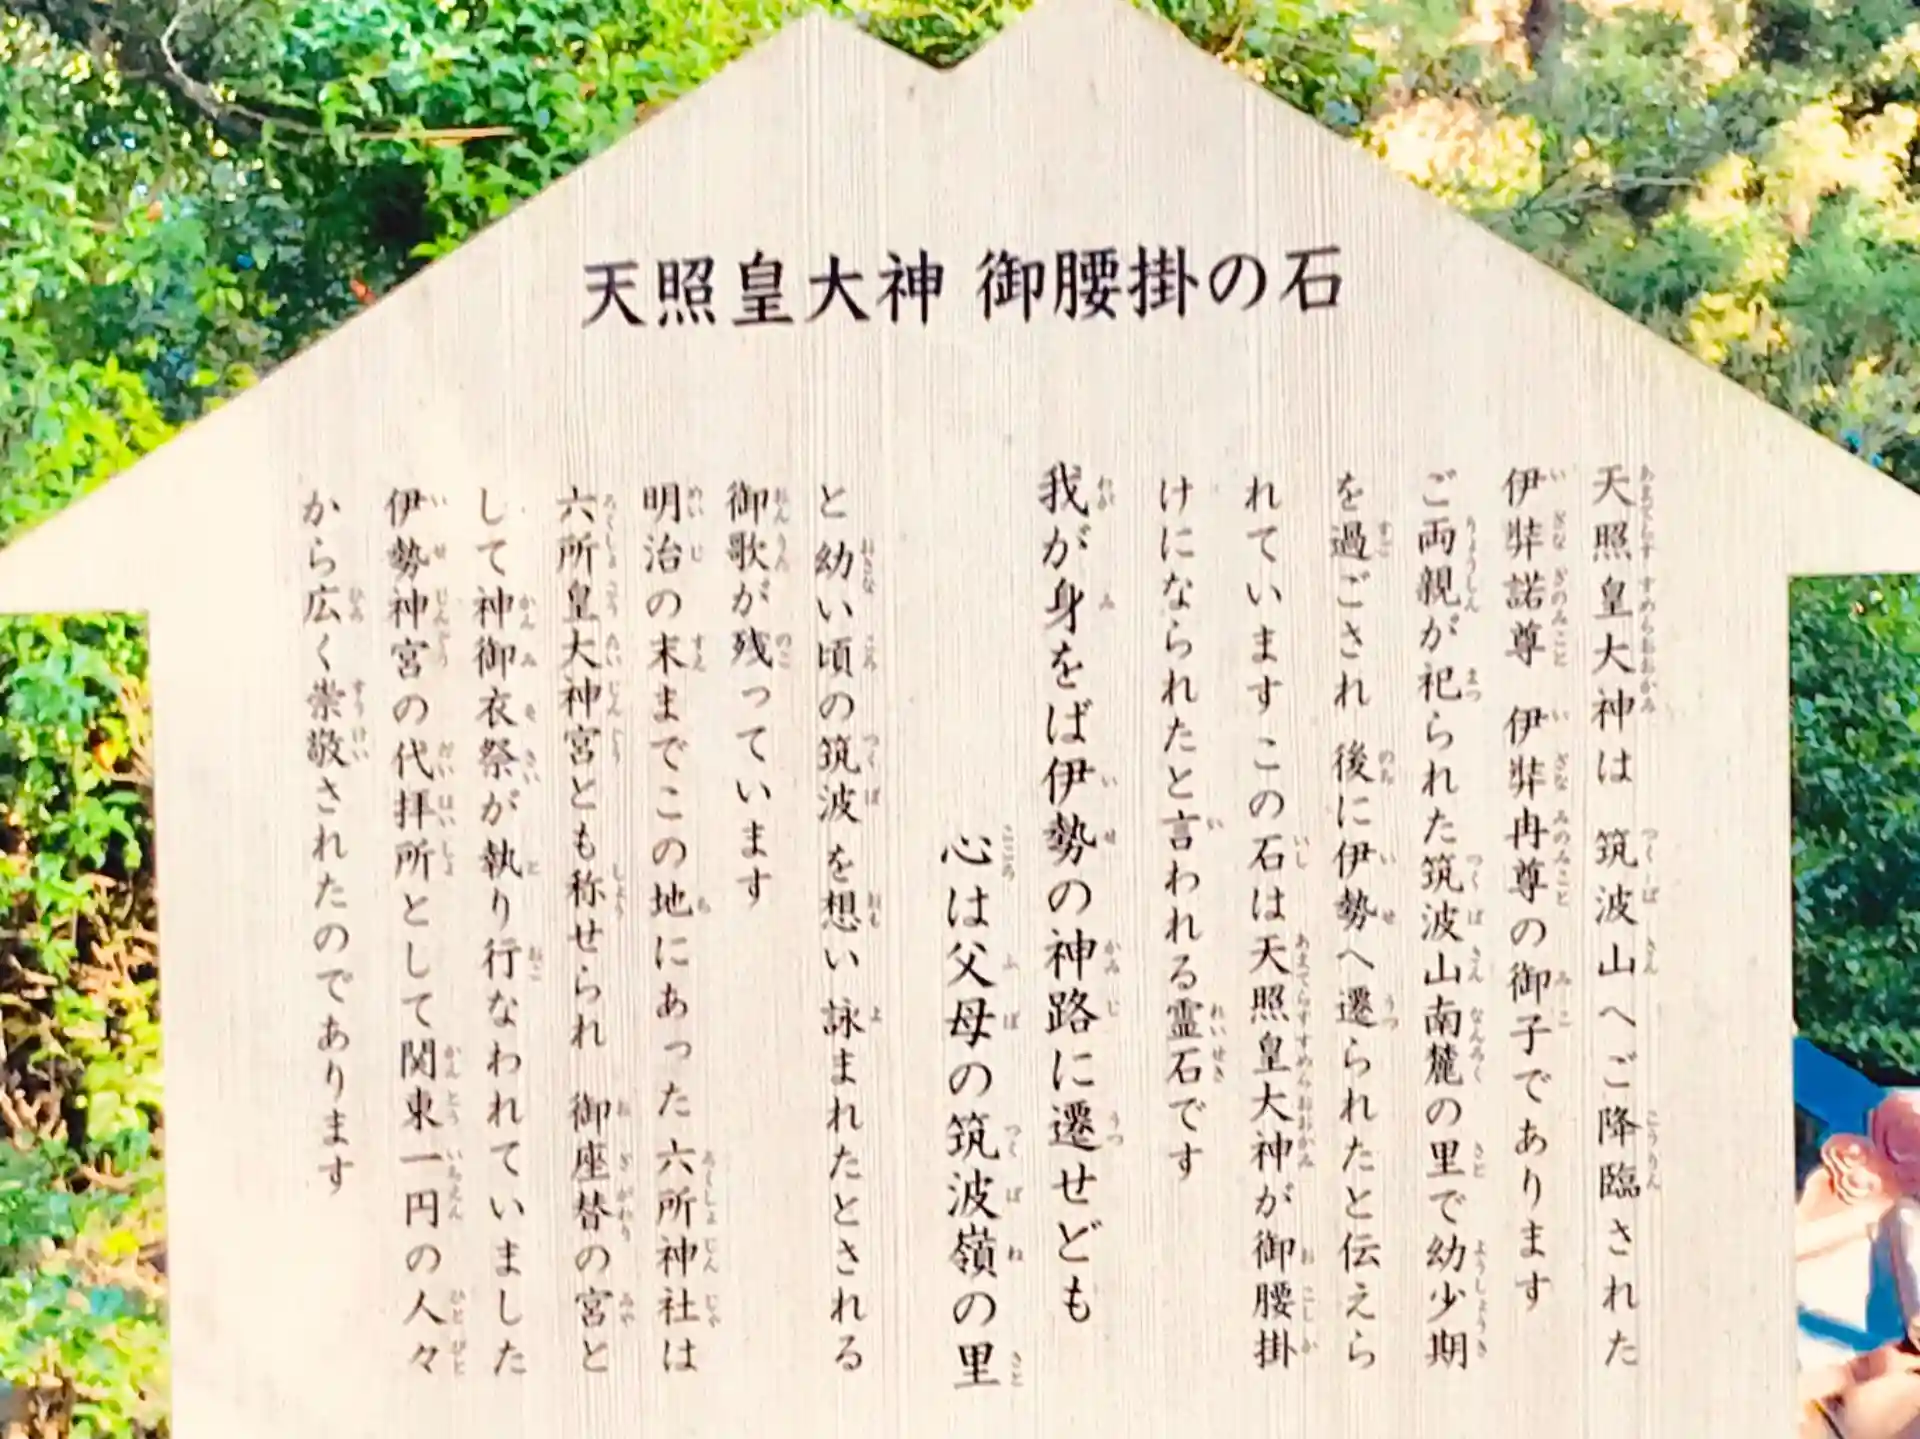 天照皇大神 御腰掛の石
天照皇大神は 筑波山へご降臨された
伊弉諾尊 伊弉冉尊の御子であります
ご両親が祀られた筑波山南麓の里で幼少期
を過ごされ 後に伊勢へ遷られたと伝えら
れています この石は天照皇大神が御腰掛
けになられたと言われる霊石です
我が身をば伊勢の神路に遷せども
心は父母の筑波嶺の里
と幼い頃の筑波を想い詠まれたとされる
御歌が残っています
明治の末までこの地にあった六所神社は
六所皇大神宮とも称せられ 御座替の宮と
して神御衣祭が執り行なわれていました
伊勢神宮の代拝所として関東一円の人々
から広く崇敬されたのであります